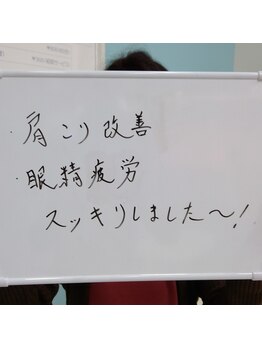 ・肩こり改善
・眼精疲労
スッキリしました〜!